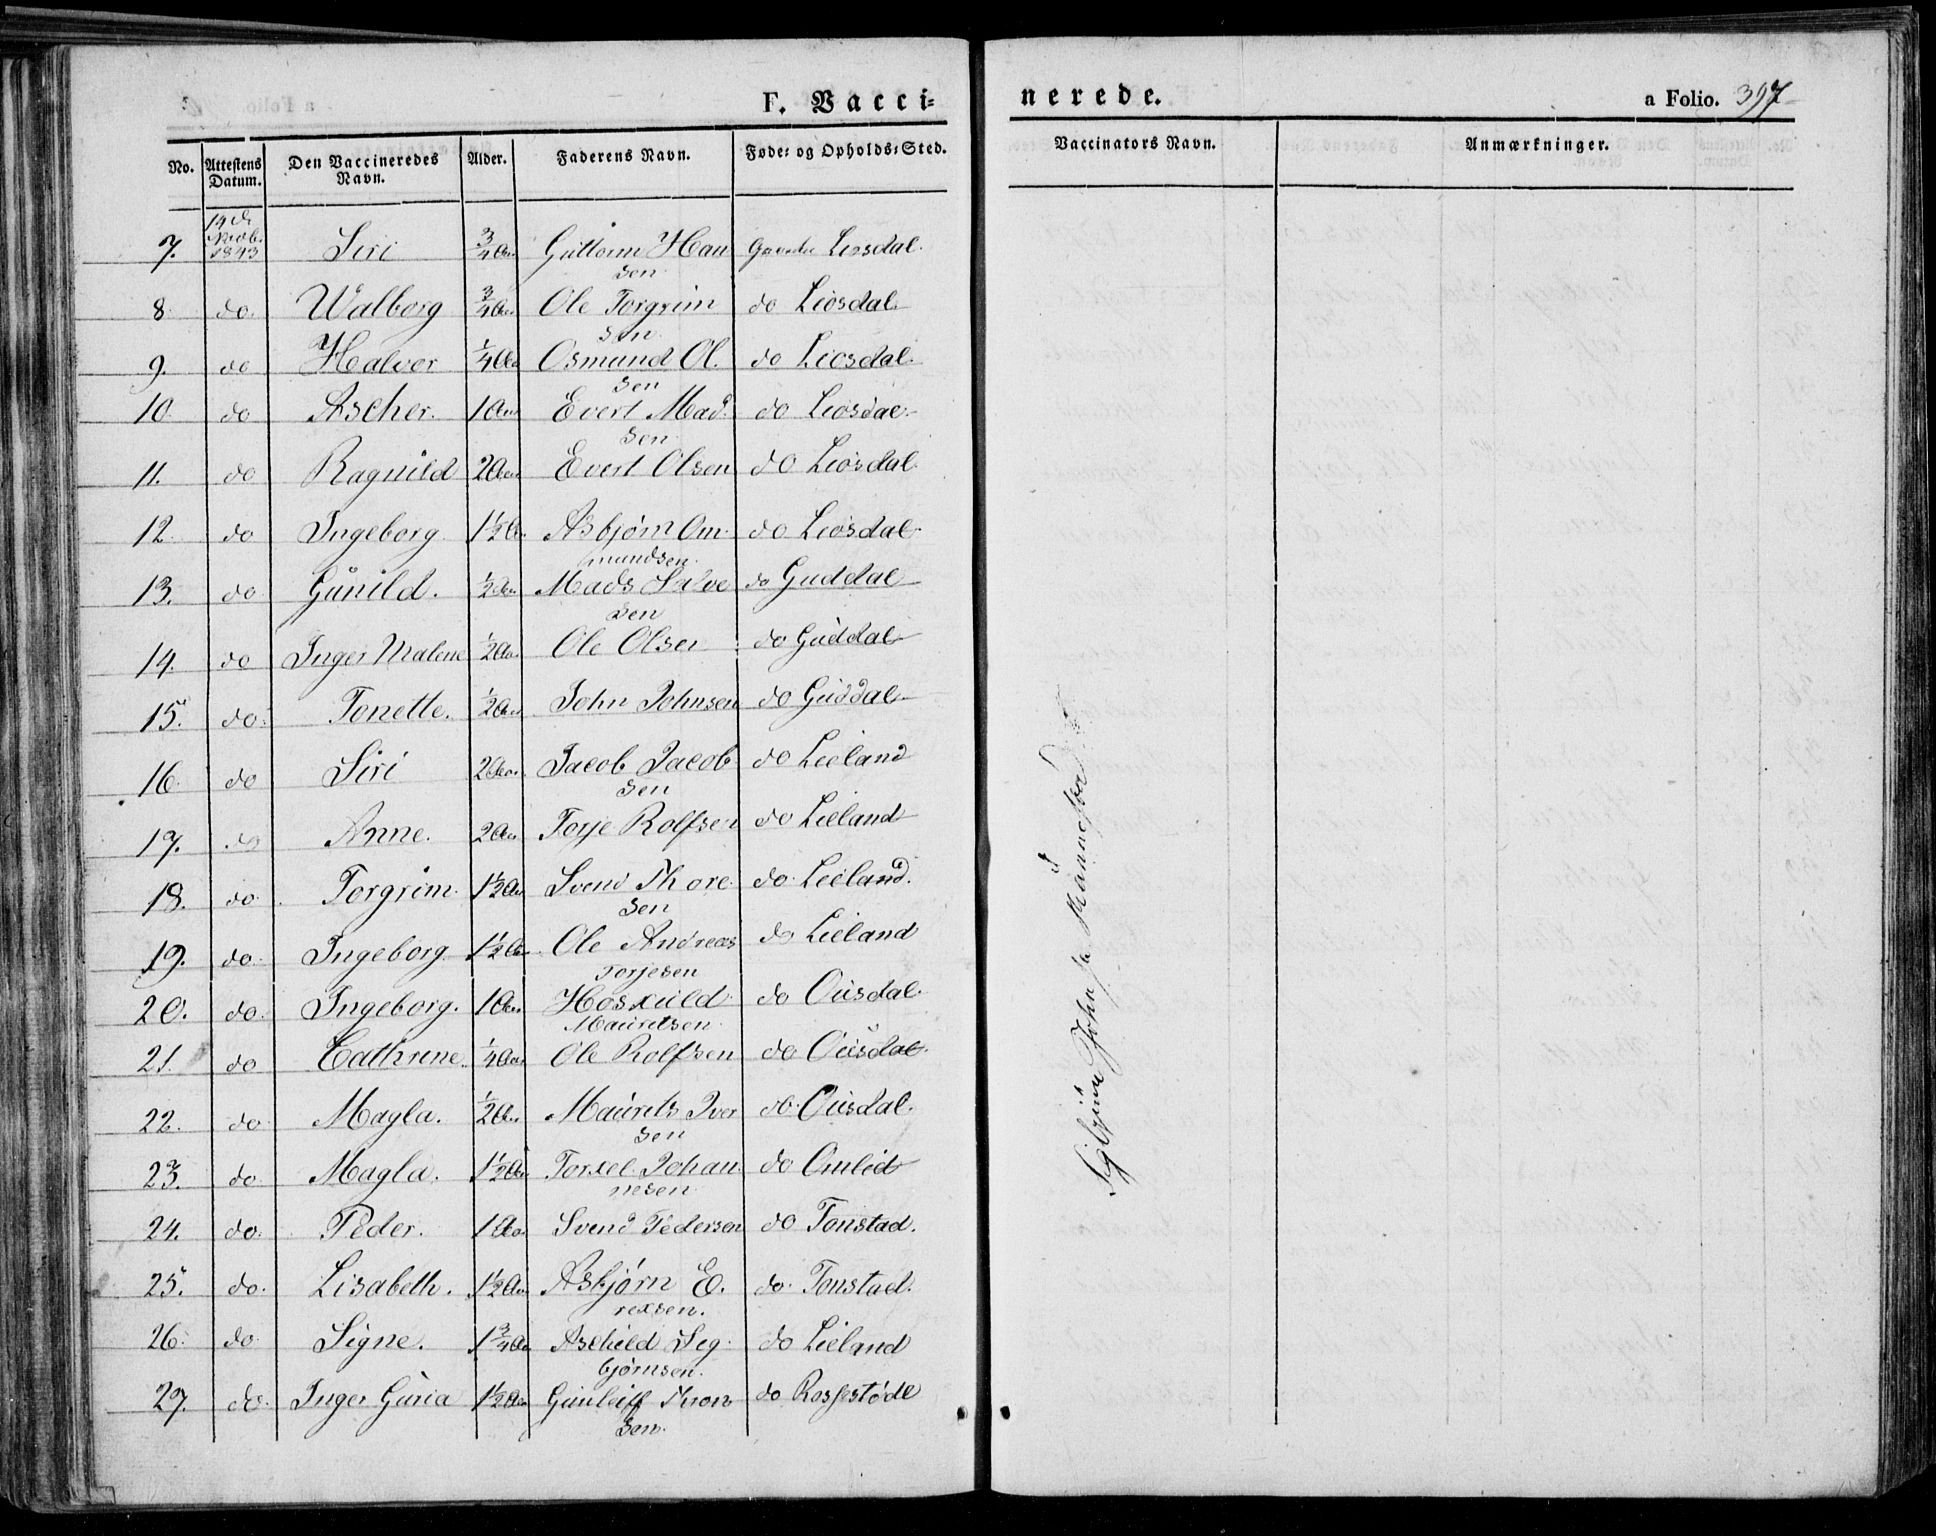 F. Vacci=
nerede.
a Folio. 397
No. Attestens Datum. Den Vaccineredes Navn. Alder. Faderens Navn. Føde= og Opholds=Sted. Vaccinators Navn. Anmærkninger.
14 d.
Novb.
7. 1843 Siri 3/4 Aar Guttorm Han Gaarden Liosdal.
sen
8. do. Walborg 3/4 Aar Ole Torgrim do Liosdal
sen
9. do Halvor 1/4 Aar Osmund Ol. do Liosdal
sen
10 do Ascher. 1 Aar Evert Mad. do Liosdal
sen
11. do Ragnild 2 Aar Evert Olsen do Liosdal
12. do Ingeborg 1 1/2 Aar Asbjørn Om do Liosdal
mundsen.
13. do Gunild. 1/2 Aar Mads Salve do Guddal
sen
14. do Inger Malene 1/2 Aar Ole Olsen do Guddal
15. do. Tonette. 1/2 Aar John Johnsen do Guddal
16. do Siri 2 Aar Jacob Jacob do Lieland
sen
17. do Anne. 2 Aar Torje Rolfsen do Lieland
18. do. Torgrim. 1 1/2 Aar Svend Thore do. Lieland.
sen
19. do. Ingeborg 1 1/2 Aar Ole Andreas do Lieland
Torjesen
20. do. Ingeborg. 1 Aar Hosxuld do Ousdal
Mauritsen
21. do Cathrine. 1/4 Aar Ole Rolfsen do Ousdal.
22. do Magla. 1/2 Aar Maurits Iver do. Ousdal.
sen
23. do Magla. 1 1/2 Aar Torxel Johan do Omlid
nesen
24. do. Peder. 1 Aar Svend Pedersen do Tonstad.
25. do. Lisabeth. 1 1/2 Aar Asbjørn E. do. Tonstad.
rexsen.
26. do. Signe. 1 3/4 Aar Aschild Seg do Lieland
bjørnsen.
27. do. Inger Guria 1 1/2 Aar Gunleiff Thron do Rosjestøde
sen.